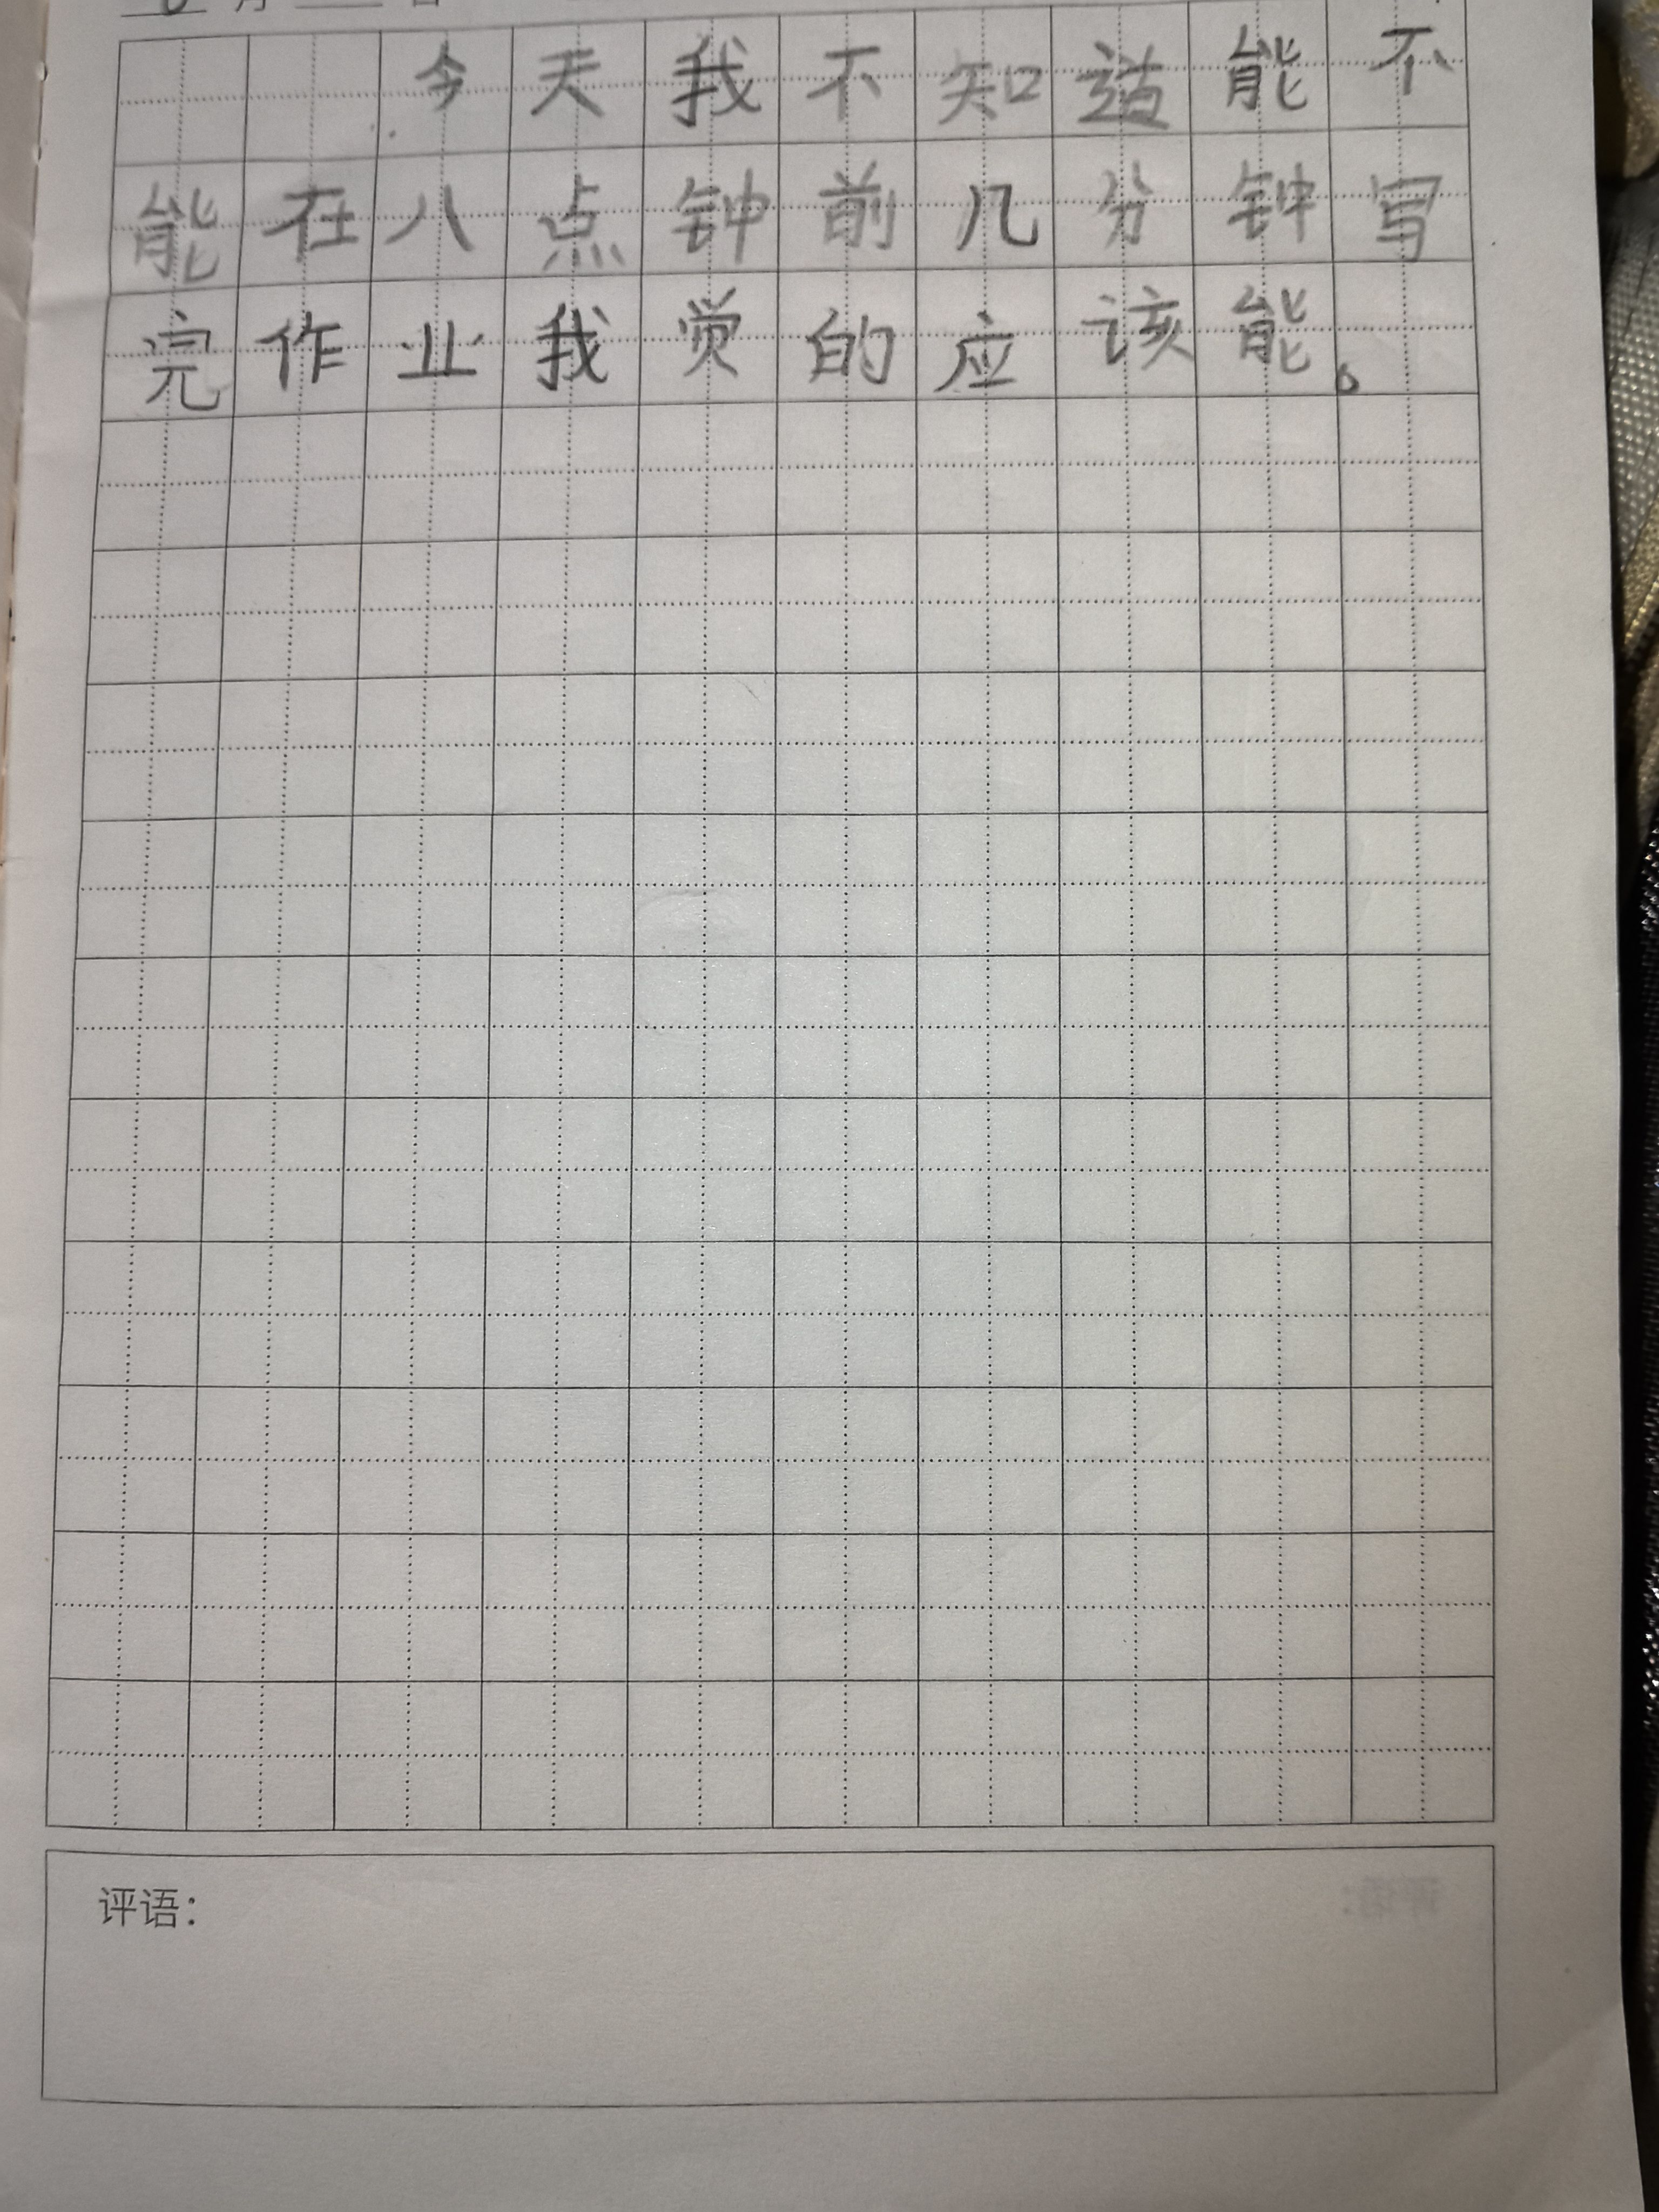 今天我不知道能不
能在八点钟前几分钟写
完作业我觉的应该能。
评语：